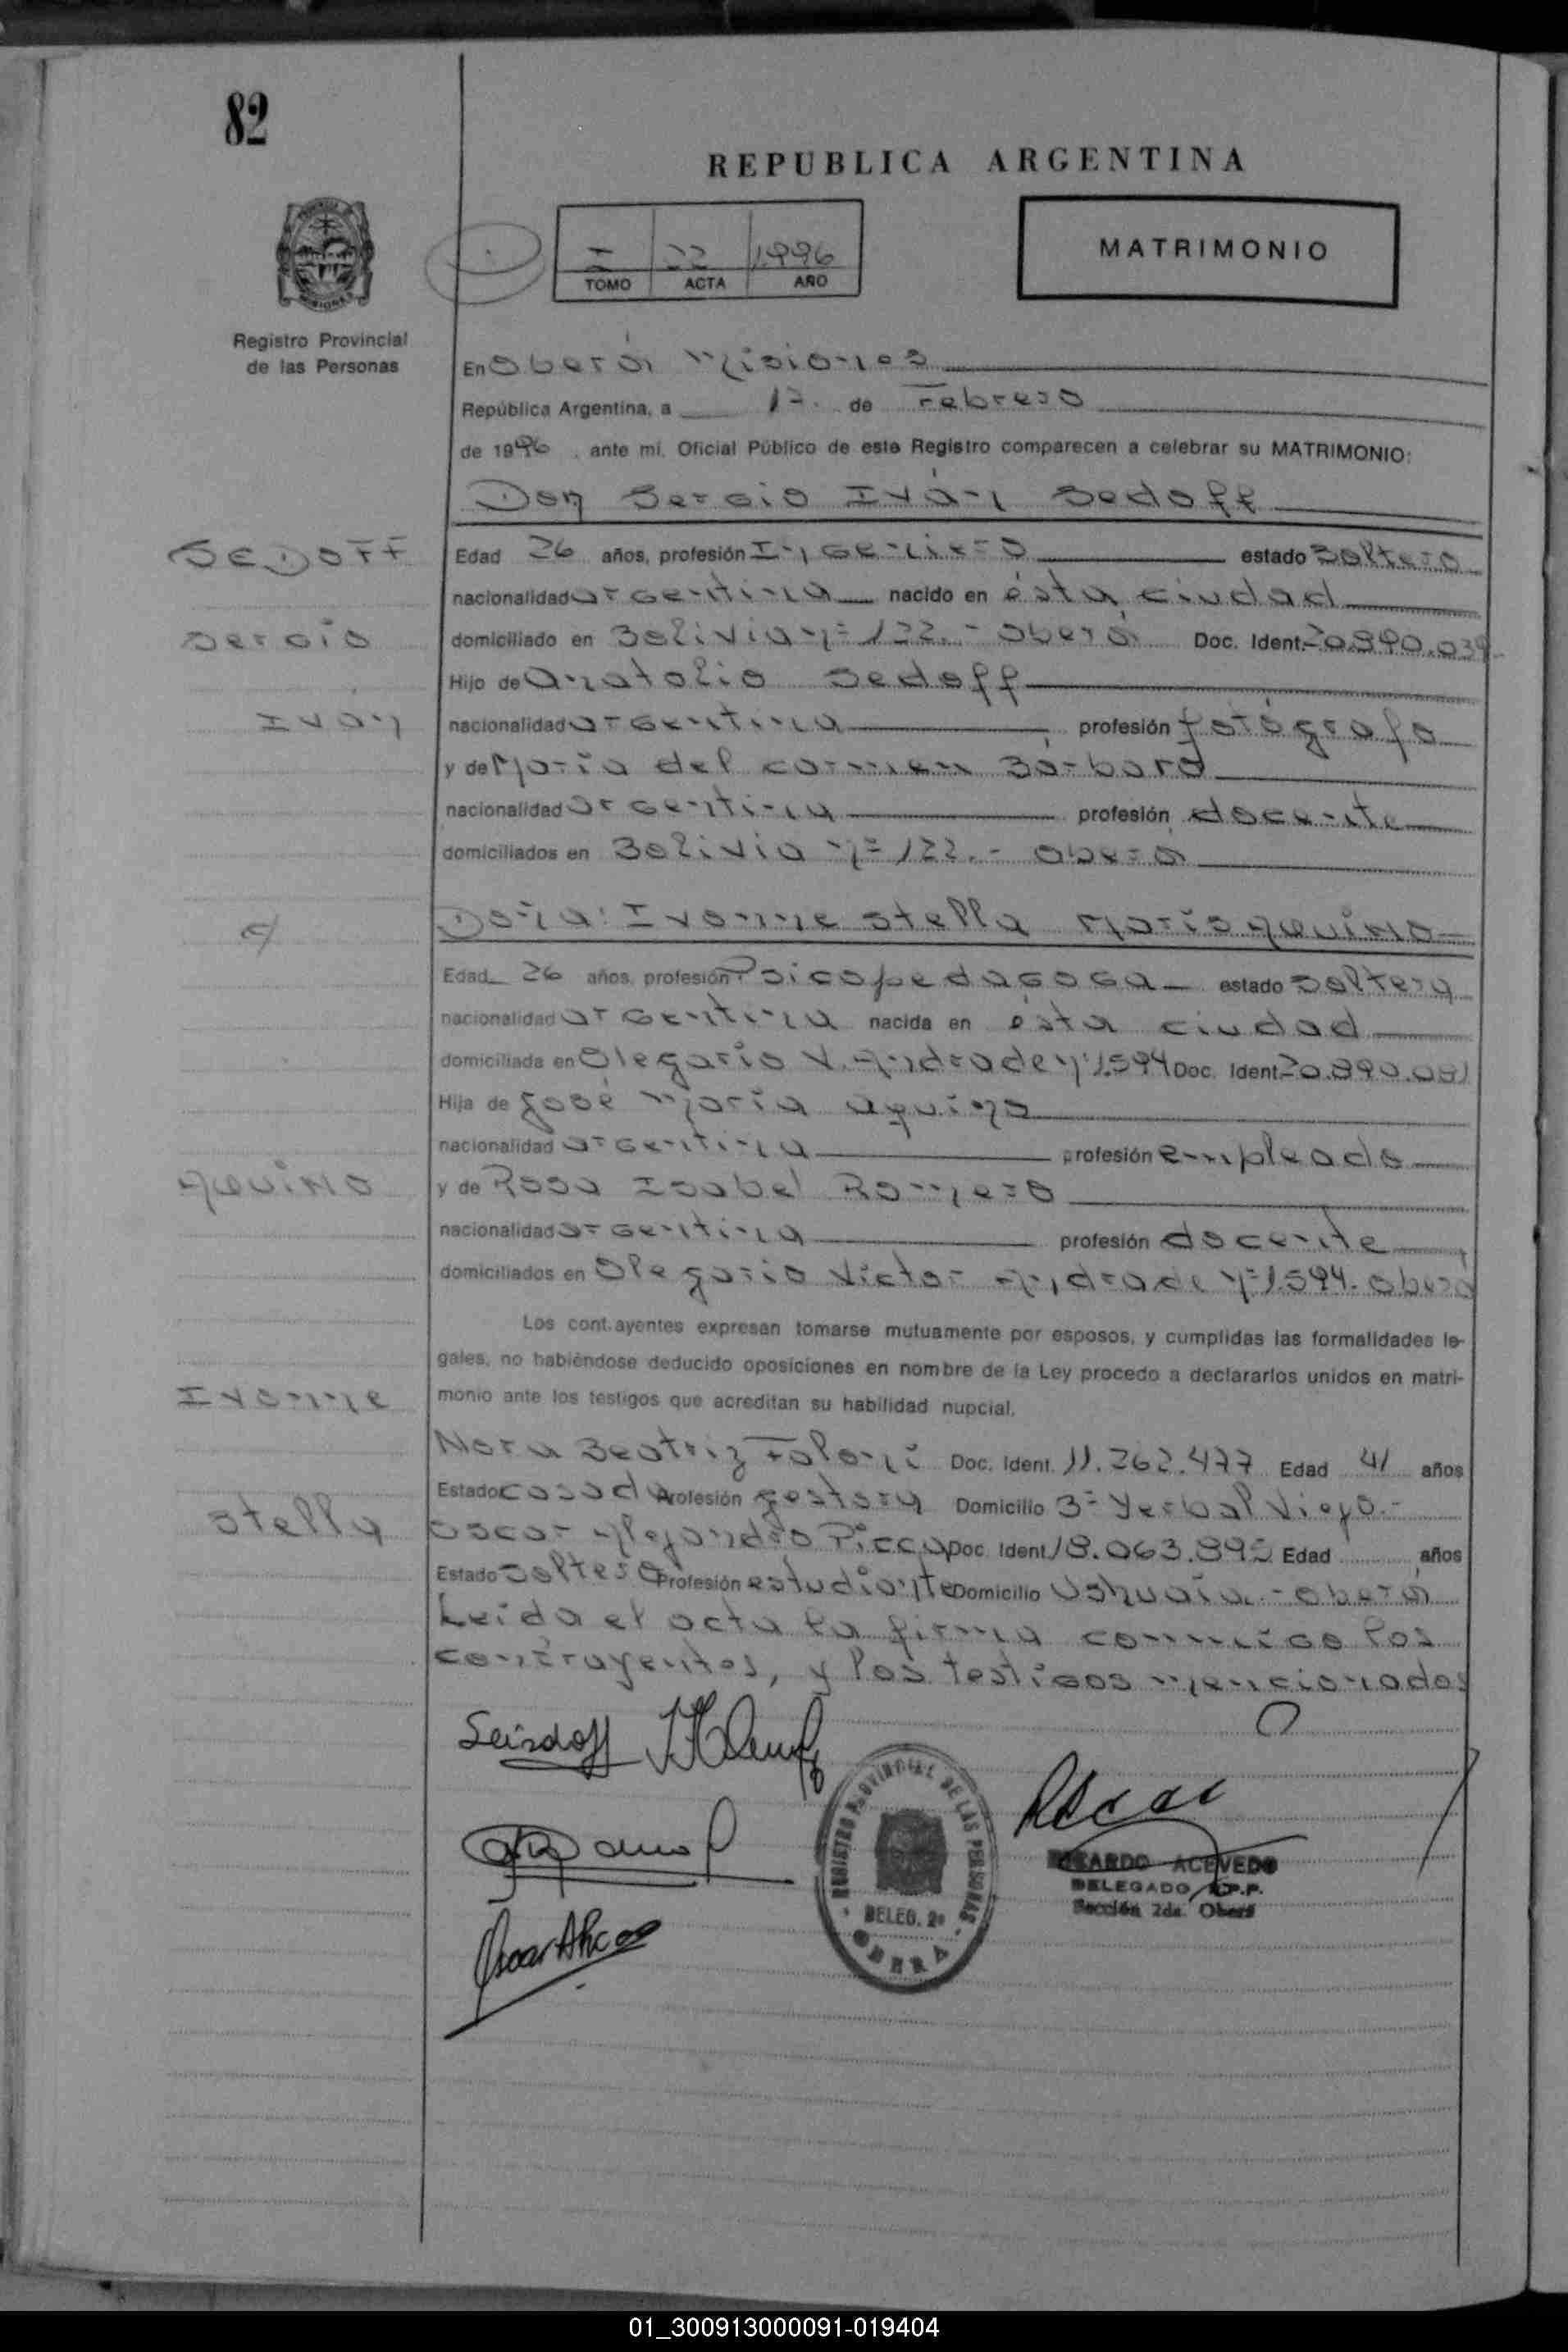 82
REPUBLICA ARGENTINA
I 22 1996
TOMO ACTA AÑO
MATRIMONIO
Registro Provincial
de las Personas
En Oberá Misiones
República Argentina, a 17. de Febrero
de 1996, ante mí, Oficial Público de este Registro comparecen a celebrar su MATRIMONIO:
Don Sergio Iván Sedoff
SEDOFF
Edad 26 años, profesión Ingeniero estado Soltero
nacionalidad argentina nacido en ésta ciudad
Sergio
domiciliado en Bolivia nº 122.- Oberá Doc. Ident. 20.890.039
Hijo de Anatolio Sedoff
Iván
nacionalidad argentina profesión fotógrafo
y de María del carmen Bárbaro
nacionalidad argentina profesión docente
domiciliados en Bolivia nº 122.- Oberá
c/
Doña: Ivonne Stella Maris Aquino
Edad 26 años, profesión Psicopedagoga estado Soltera
nacionalidad argentina nacida en ésta ciudad
domiciliada en Olegario V. Andrade nº 1.594 Doc. Ident. 20.890.081
Hija de José María Aquino
nacionalidad argentina profesión empleado
Aquino
y de Rosa Isabel Romero
nacionalidad argentina profesión docente
domiciliados en Olegario Victor Andrade nº 1.594. Oberá
Los contrayentes expresan tomarse mutuamente por esposos, y cumplidas las formalidades le-
gales, no habiéndose deducido oposiciones en nombre de la Ley procedo a declararlos unidos en matri-
monio ante los testigos que acreditan su habilidad nupcial.
Ivonne
Nora Beatriz Doc. Ident. 11.262.477 Edad 41 años
Estado casada Profesión gestora Domicilio Bº Yerbal Viejo.-
Stella
Oscar Alejandro Doc. Ident. 18.063.892 Edad años
Estado Soltero Profesión estudiante Domicilio Ushuaia.- Oberá
Leida el acta la firma conmigo los
contrayentes, y los testigos mencionados
REGISTRO PROVINCIAL DE LAS PERSONAS
DELEG. 2ª
OBERA
RICARDO ACEVEDO
DELEGADO R.P.P.
Sección 2da. Oberá
01_300913000091-019404